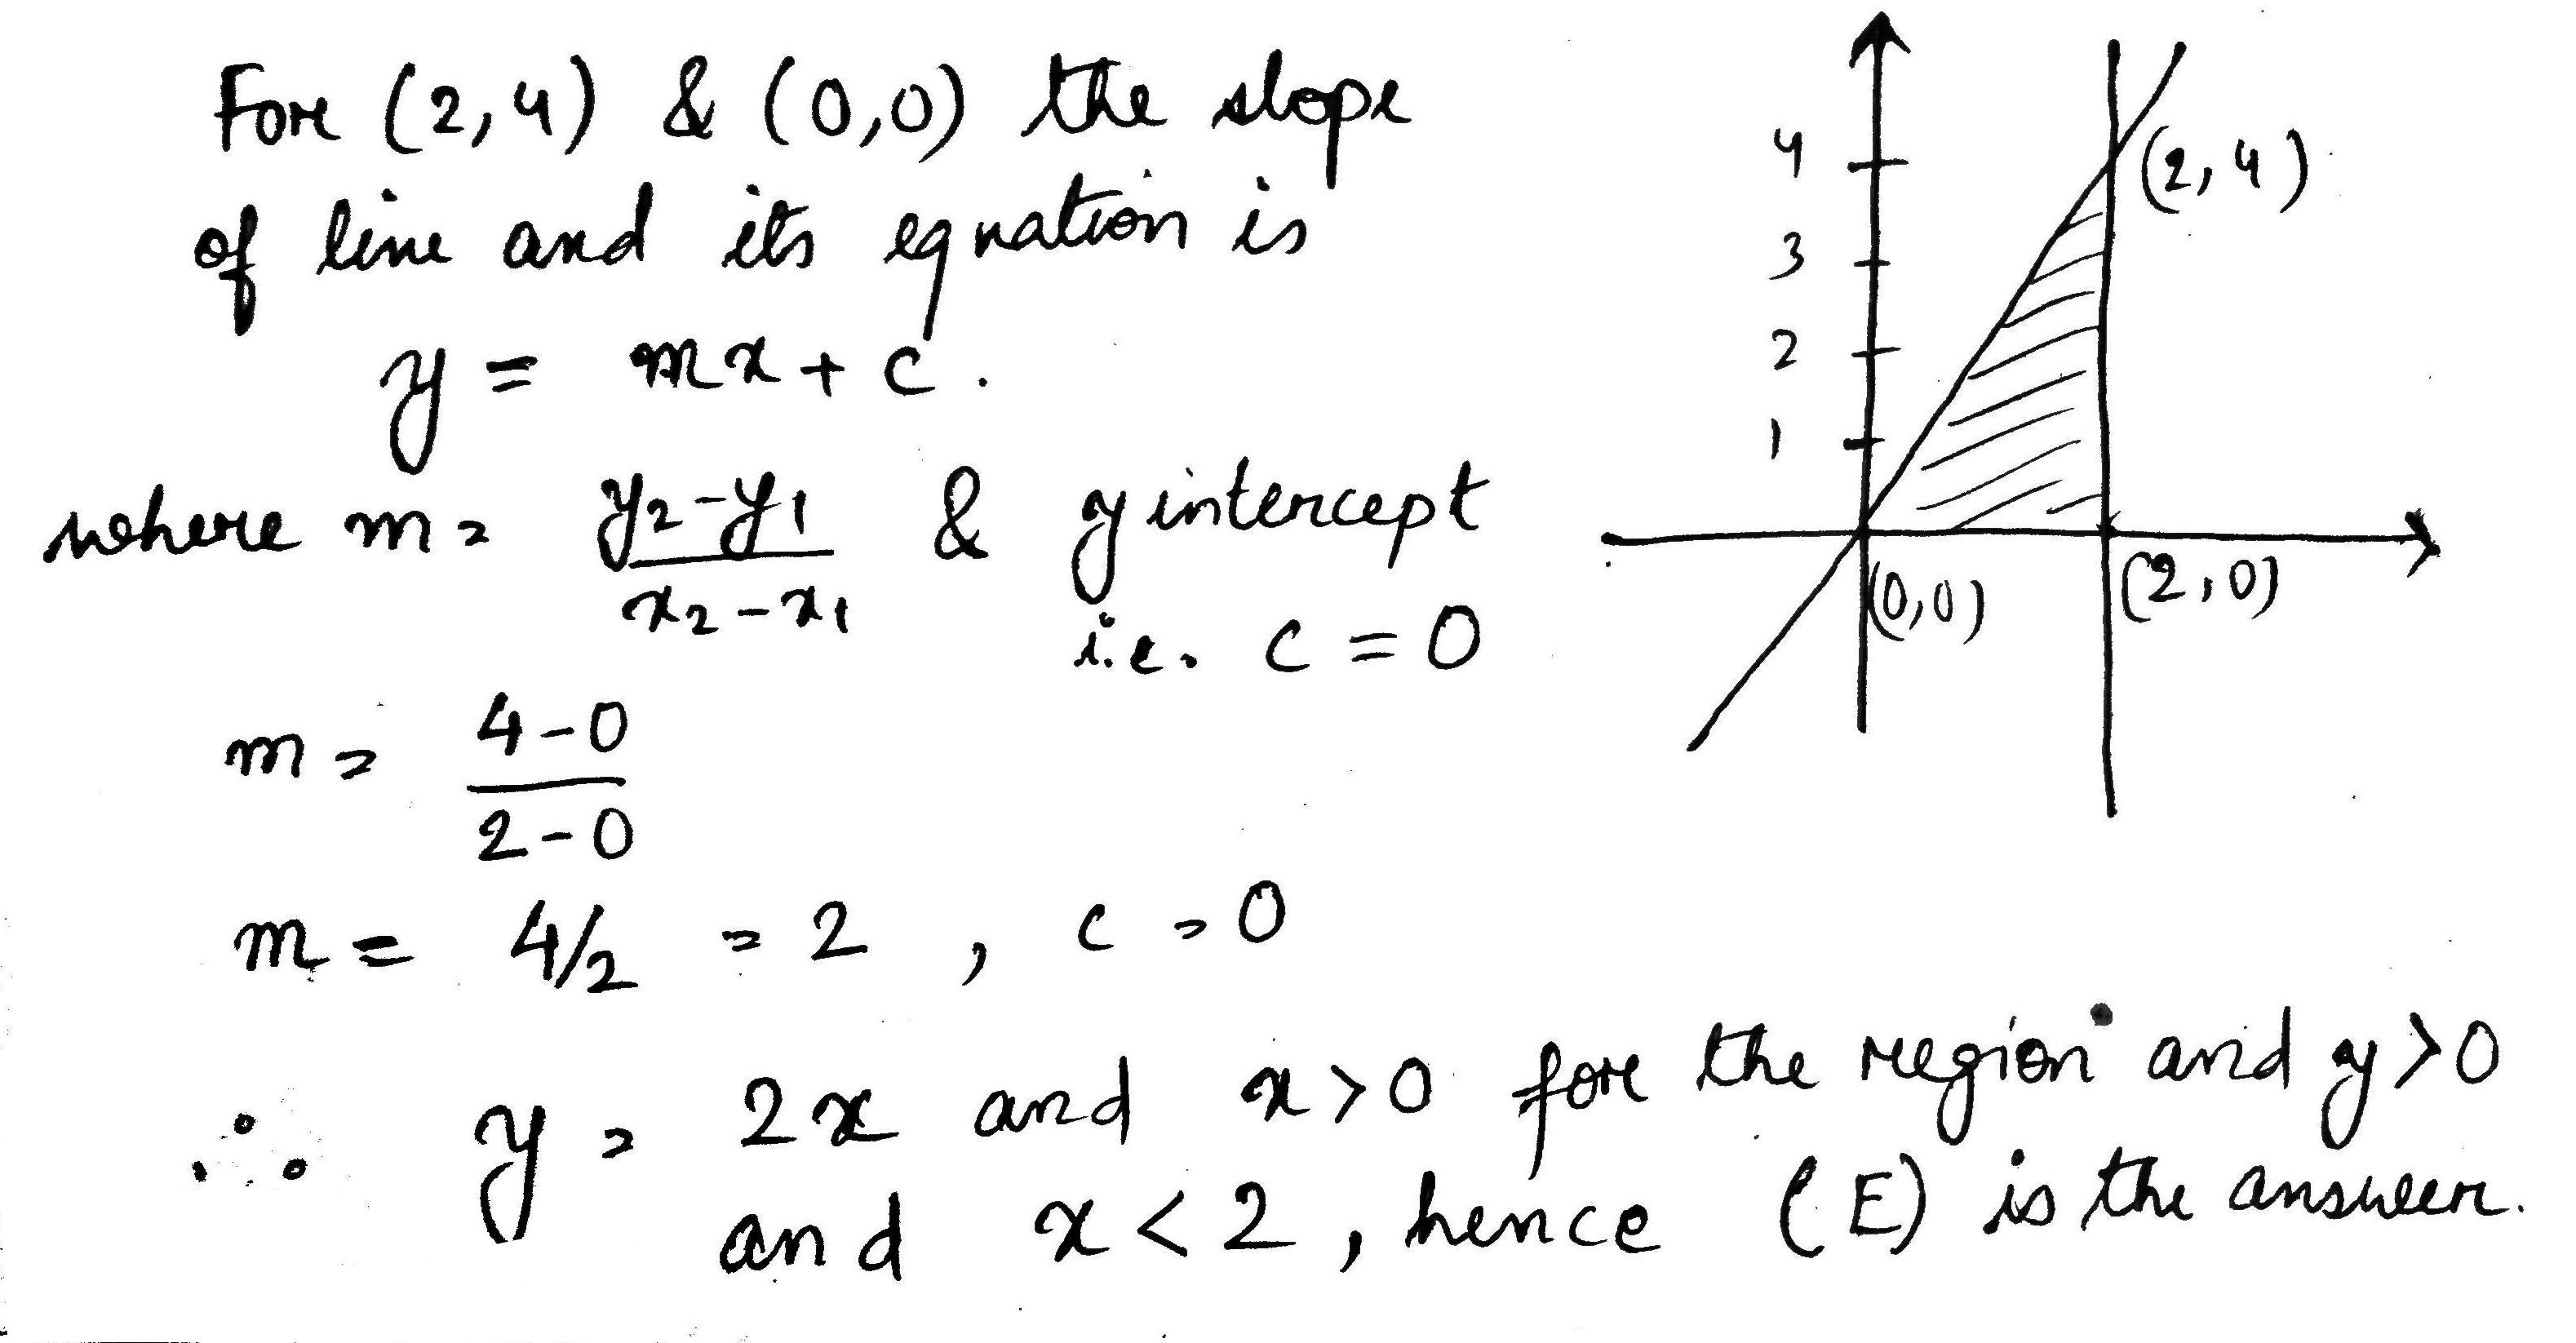 For (2,4) & (0,0) the slope
of line and its equation is
y = mx + c.
where m = y₂-y₁ / x₂-x₁ & y intercept
i.e. c = 0
m = 4-0 / 2-0
m = 4/2 = 2 , c = 0
∴ y = 2x and x > 0 for the region and y > 0
and x < 2 , hence (E) is the answer.
4
(2,4)
3
2
1
(0,0)
(2,0)